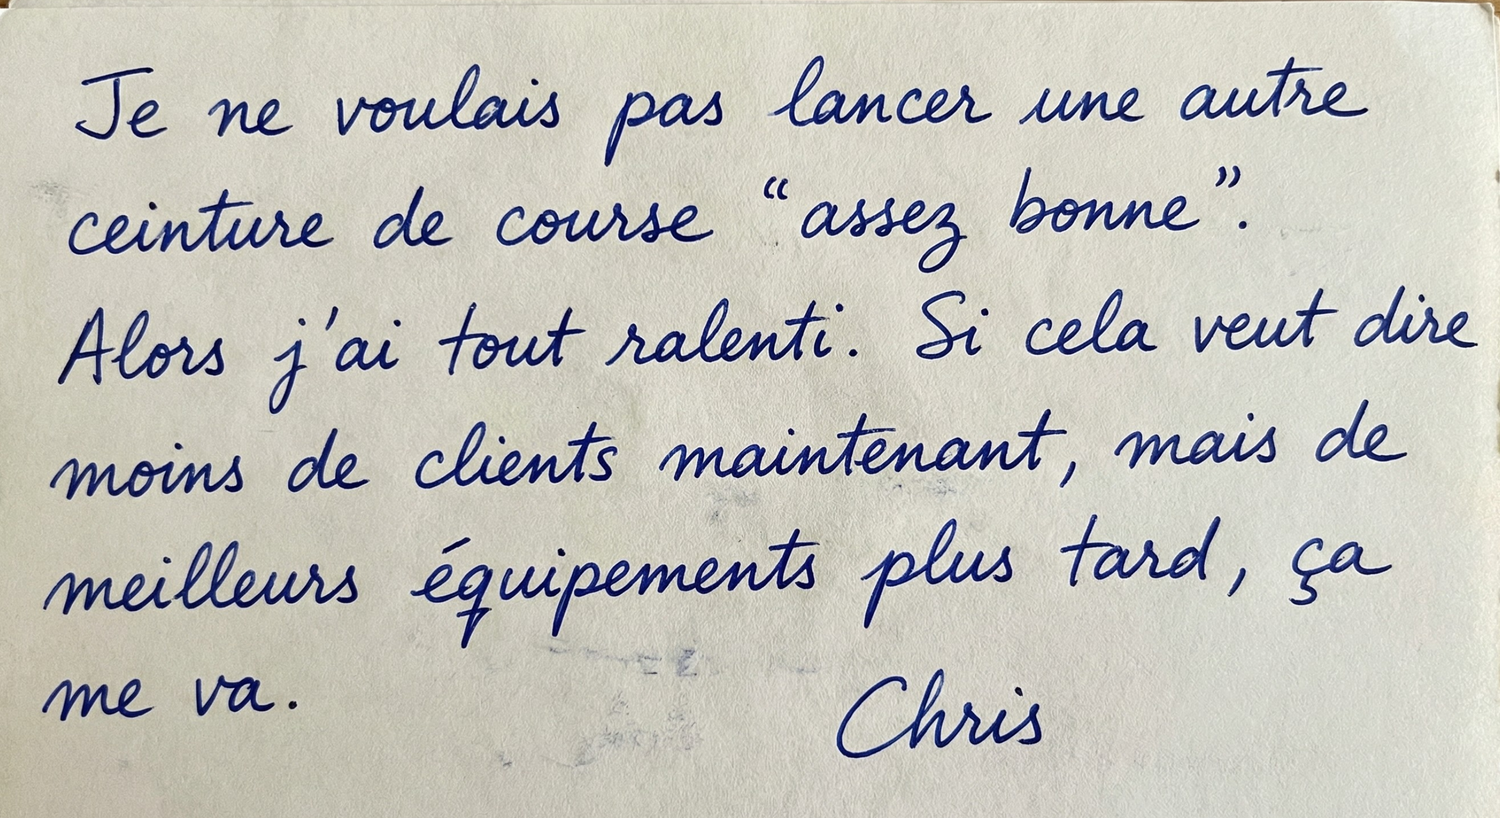 Je ne voulais pas lancer une autre
ceinture de course “assez bonne”.
Alors j'ai tout ralenti. Si cela veut dire
moins de clients maintenant, mais de
meilleurs équipements plus tard, ça
me va.
Chris